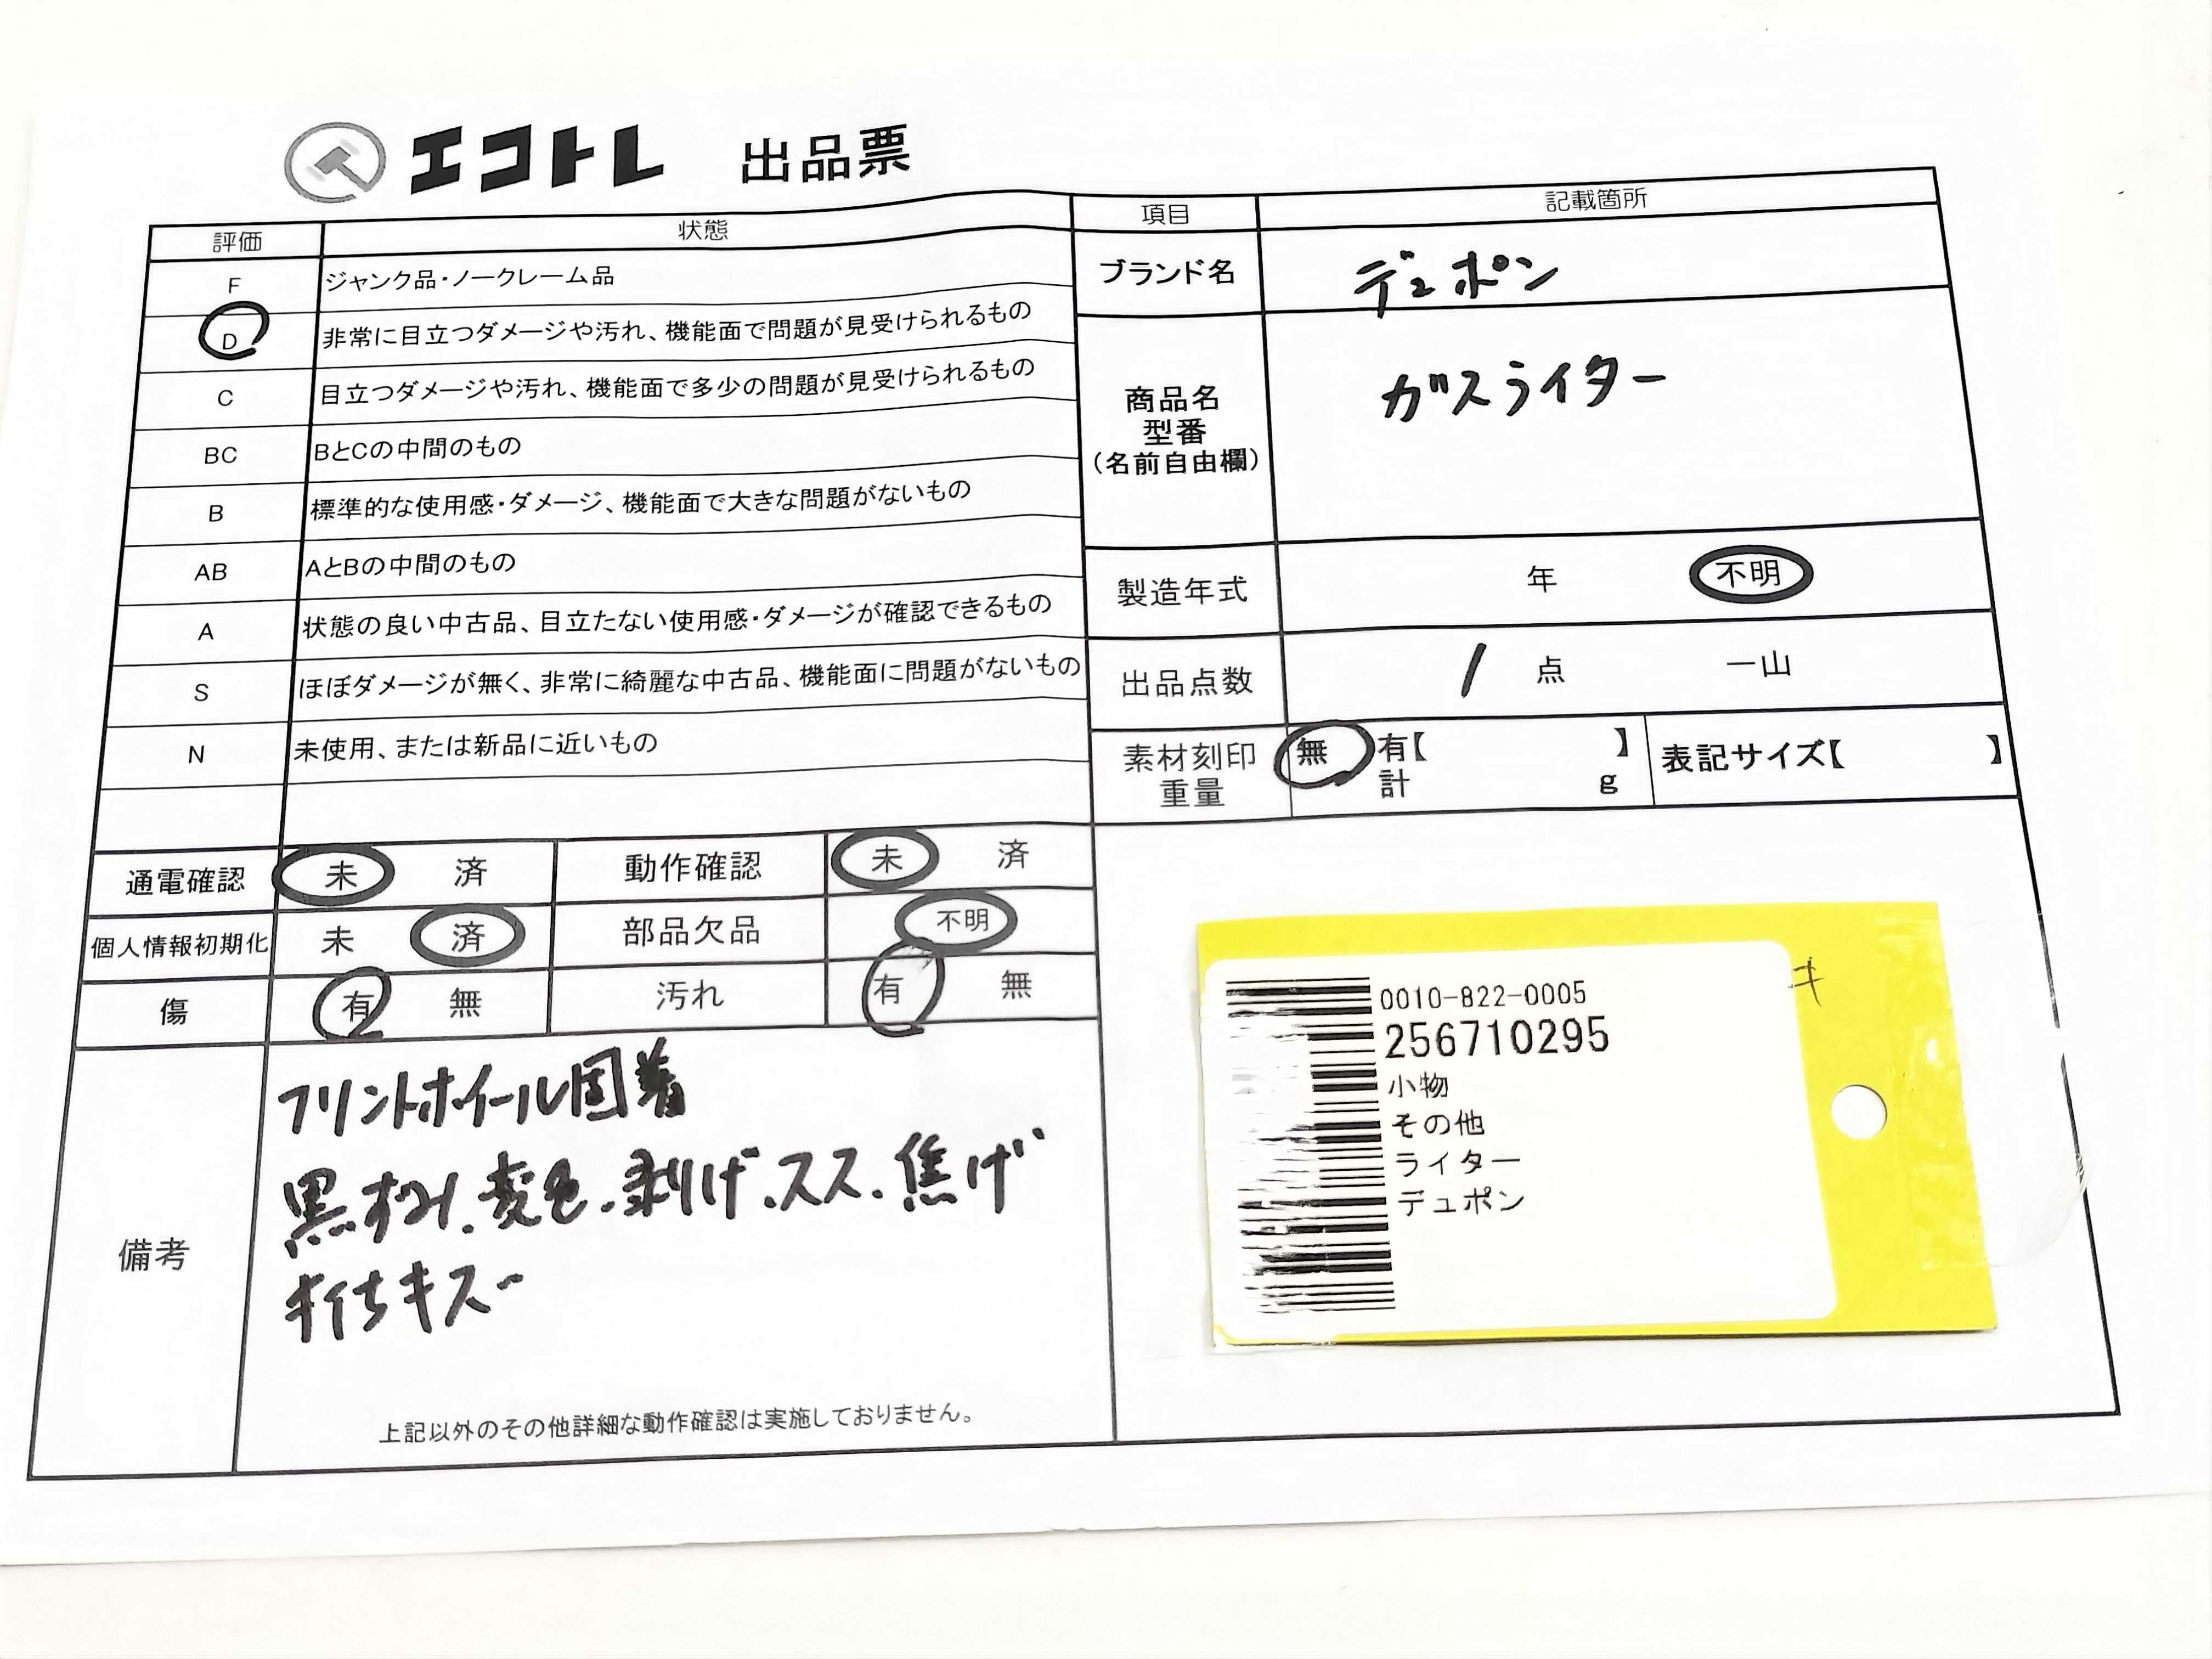 エコトレ 出品票
評価 状態
F ジャンク品・ノークレーム品
D 非常に目立つダメージや汚れ、機能面で問題が見受けられるもの
C 目立つダメージや汚れ、機能面で多少の問題が見受けられるもの
BC BとCの中間のもの
B 標準的な使用感・ダメージ、機能面で大きな問題がないもの
AB AとBの中間のもの
A 状態の良い中古品、目立たない使用感・ダメージが確認できるもの
S ほぼダメージが無く、非常に綺麗な中古品、機能面に問題がないもの
N 未使用、または新品に近いもの
項目 記載箇所
ブランド名 デュポン
商品名
型番
(名前自由欄)
ガスライター
製造年式 年 不明
出品点数 1 点 一山
素材刻印 無 有【 】 表記サイズ【 】
重量 計 g
通電確認 未 済 動作確認 未 済
個人情報初期化 未 済 部品欠品 不明
傷 有 無 汚れ 有 無
備考
フリントホイール固着
黒ずみ.変色.剥げ.スス.焦げ
打ちキズ
上記以外のその他詳細な動作確認は実施しておりません。
0010-822-0005
256710295
小物
その他
ライター
デュポン
キ